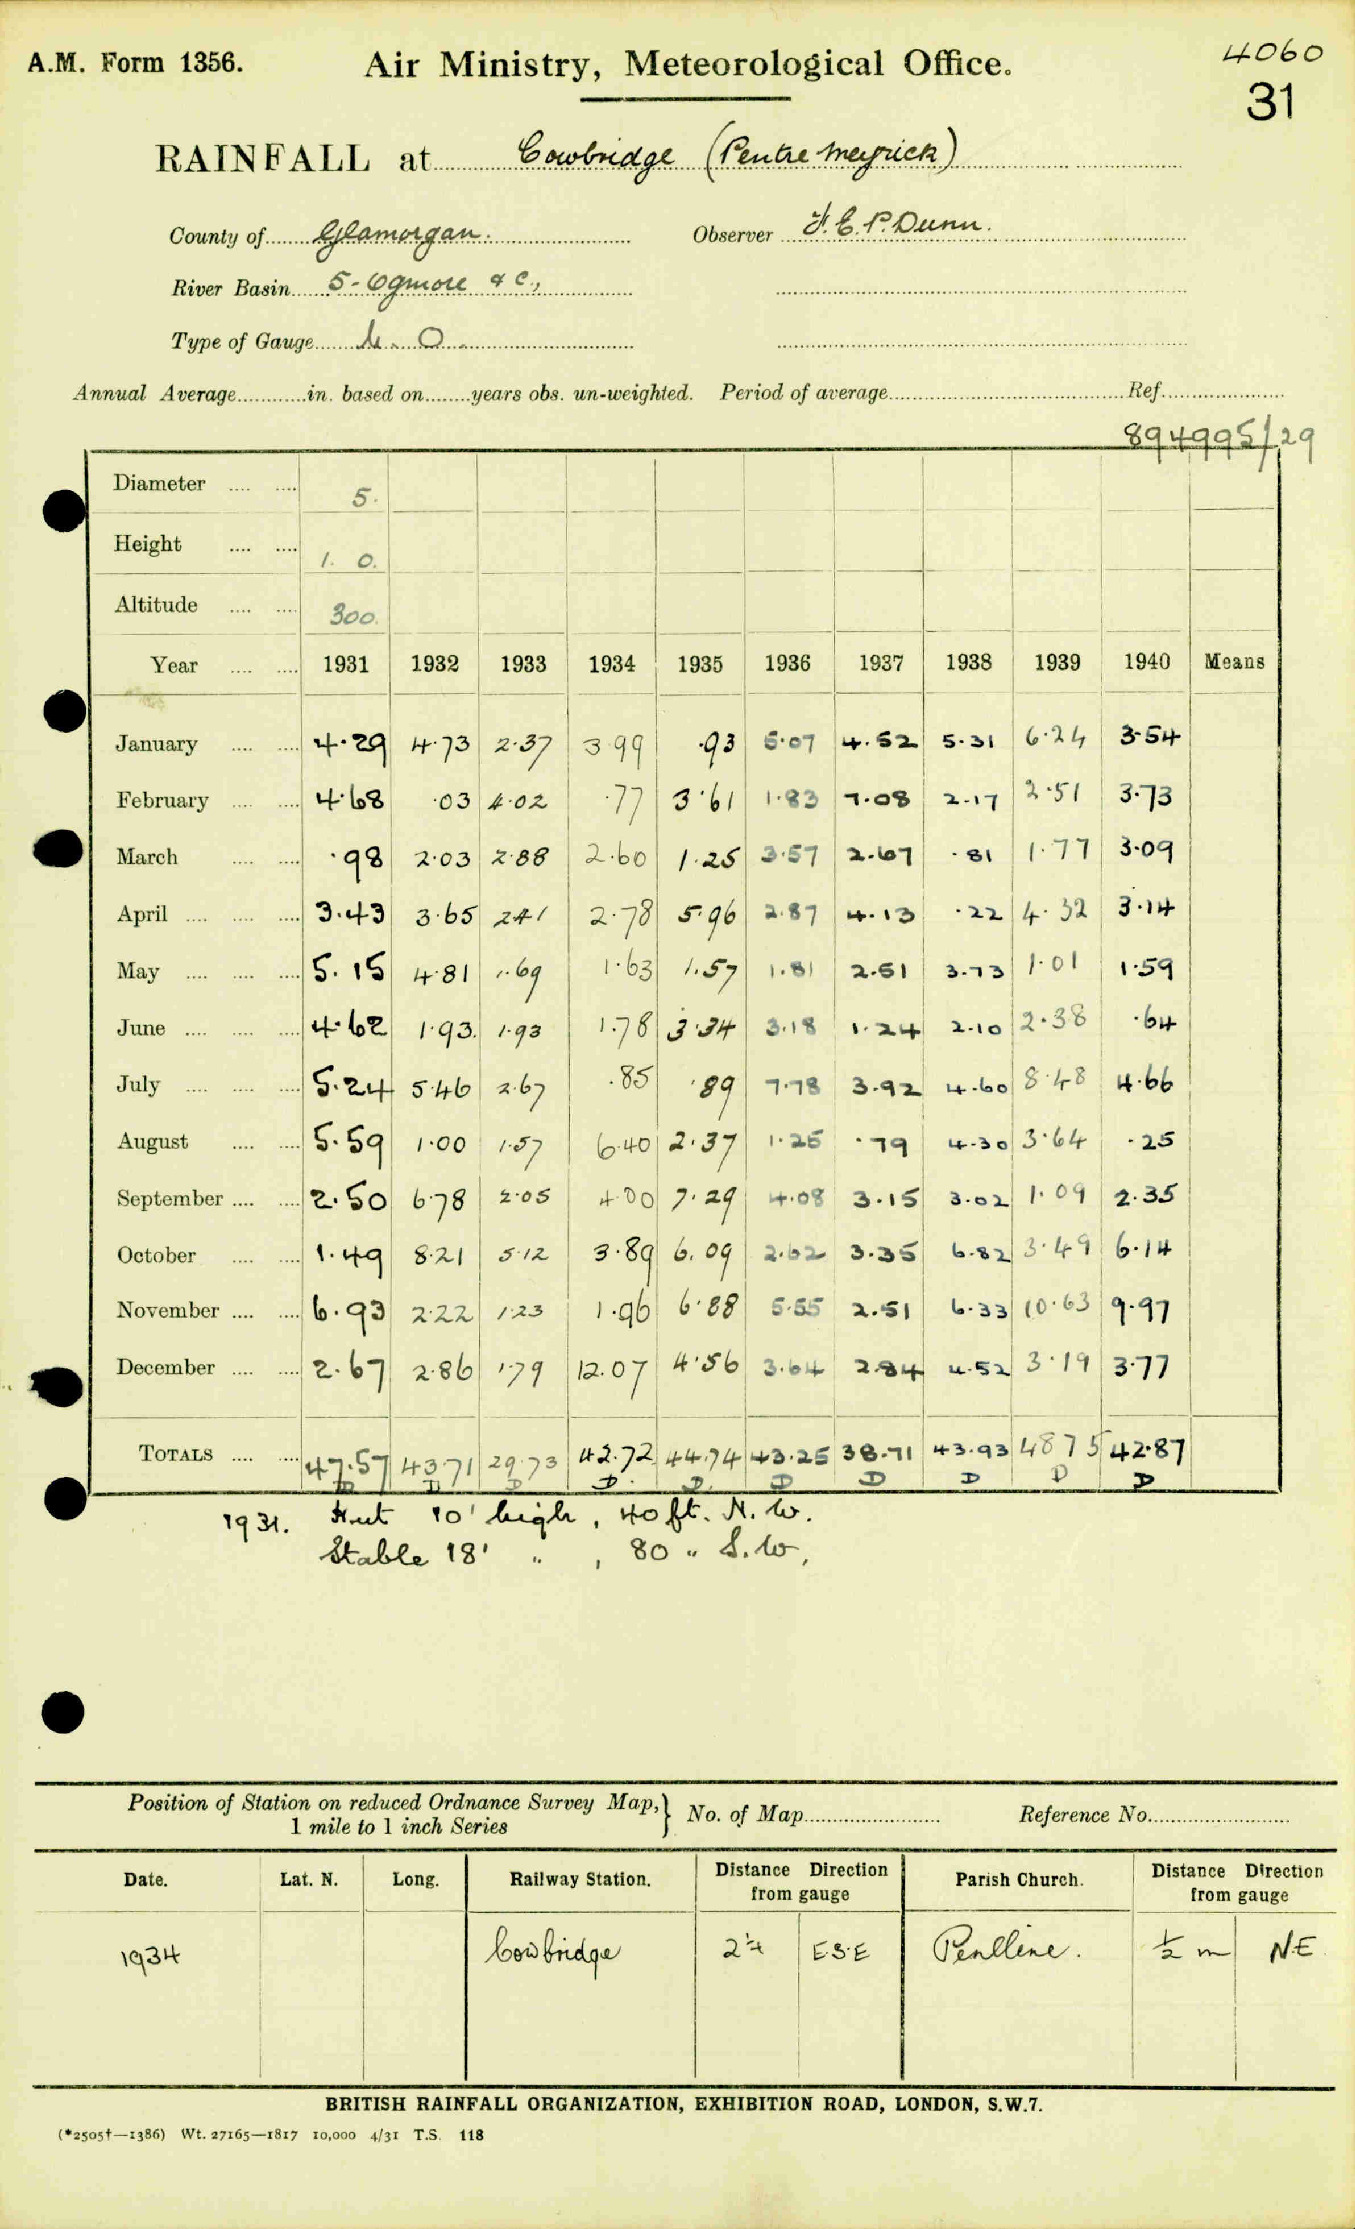 A.M. Form 1356.
Air Ministry, Meteorological Office.
4060
31
RAINFALL at Cowbridge (Pentre Meyrick)
County of Glamorgan.
Observer F.E.P. Dunn.
River Basin 5-Ogmore &c.,
Type of Gauge M.O.
Annual Average in. based on years obs. un-weighted. Period of average Ref.
894995/29
Diameter 5.
Height 1. 0.
Altitude 300.
Year 1931 1932 1933 1934 1935 1936 1937 1938 1939 1940 Means
January 4.29 4.73 2.37 3.99 .93 5.07 4.52 5.31 6.24 3.54
February 4.68 .03 4.02 .77 3.61 1.83 7.08 2.17 2.51 3.73
March .98 2.03 2.88 2.60 1.25 3.57 2.67 .81 1.77 3.09
April 3.43 3.65 2.41 2.78 5.96 2.87 4.13 .22 4.32 3.14
May 5.15 4.81 1.69 1.63 1.57 1.81 2.51 3.73 1.01 1.59
June 4.62 1.93 1.93 1.78 3.34 3.18 1.24 2.10 2.38 .64
July 5.24 5.46 2.67 .85 .89 7.78 3.92 4.60 8.48 4.66
August 5.59 1.00 1.57 6.40 2.37 1.25 .79 4.30 3.64 .25
September 2.50 6.78 2.05 4.00 7.29 4.08 3.15 3.02 1.09 2.35
October 1.49 8.21 5.12 3.89 6.09 2.62 3.35 6.82 3.49 6.14
November 6.93 2.22 1.23 1.96 6.88 5.55 2.51 6.33 10.63 9.97
December 2.67 2.86 1.79 12.07 4.56 3.64 2.84 4.52 3.19 3.77
TOTALS 47.57 43.71 29.73 42.72 44.74 43.25 38.71 43.93 48 75 42.87
D D D D D D D D D D
1931. Hut 10' high, 40 ft. N.W.
Stable 18' " , 80 " S.W,
Position of Station on reduced Ordnance Survey Map,} No. of Map Reference No.
1 mile to 1 inch Series
Date. Lat. N. Long. Railway Station. Distance Direction from gauge Parish Church. Distance Direction from gauge
1934 Cowbridge 2¼ ESE Penlline. ½ m NE
BRITISH RAINFALL ORGANIZATION, EXHIBITION ROAD, LONDON, S.W.7.
(*2505†—1386) Wt. 27165—1817 10,000 4/31 T.S. 118